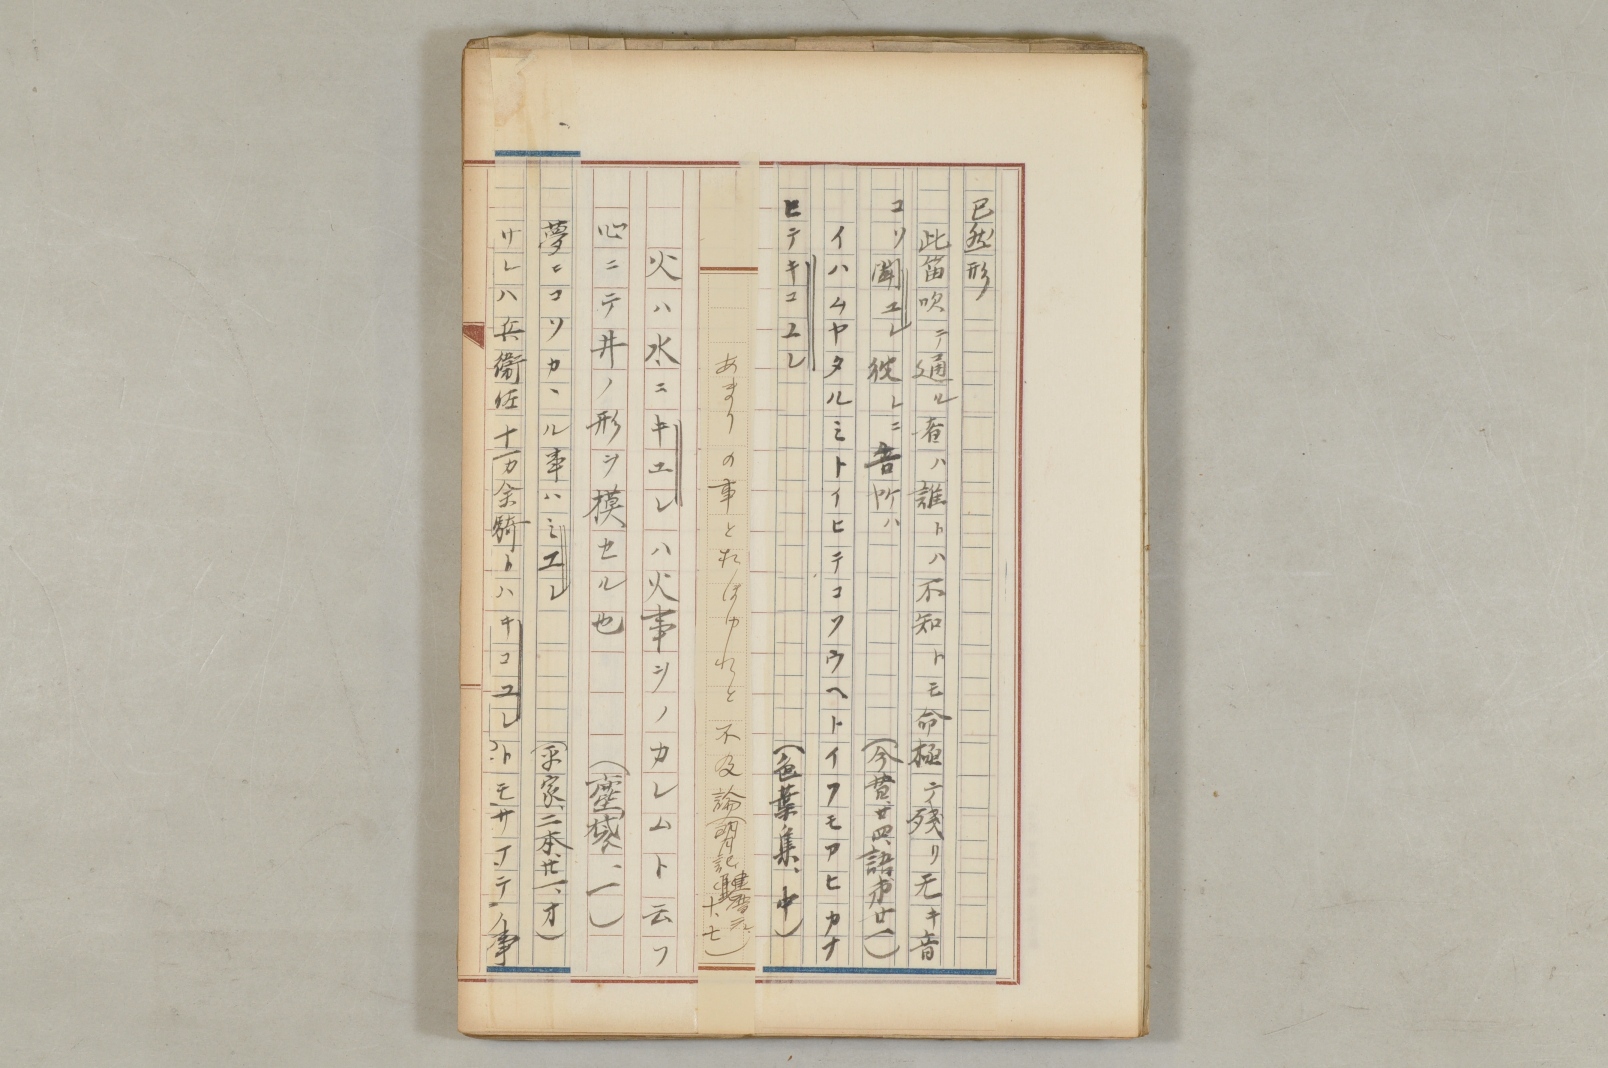 已然形
此笛吹テ通ル者ハ誰トハ不知トモ命極テ残リ无キ音
コソ聞エレ彼レニ吉所ハ(今昔廿四、語第廿一)
イハムヤタルミトイヒテコソウヘトイフモアヒカナ
ヒテキコユレ(色葉集、中)
あまりの事とおほゆれと不及論(明月記、建暦元、十、七)
火ハ水ニキエレハ火事ヲノカレムト云フ
心ニテ井ノ形ヲ模セル也(塵袋、一)
夢ニコソカヽル事ハミエレ(平家、二本、廿一、オ)
サレハ兵衛佐十万余騎トハキコユレトモサノテノ事